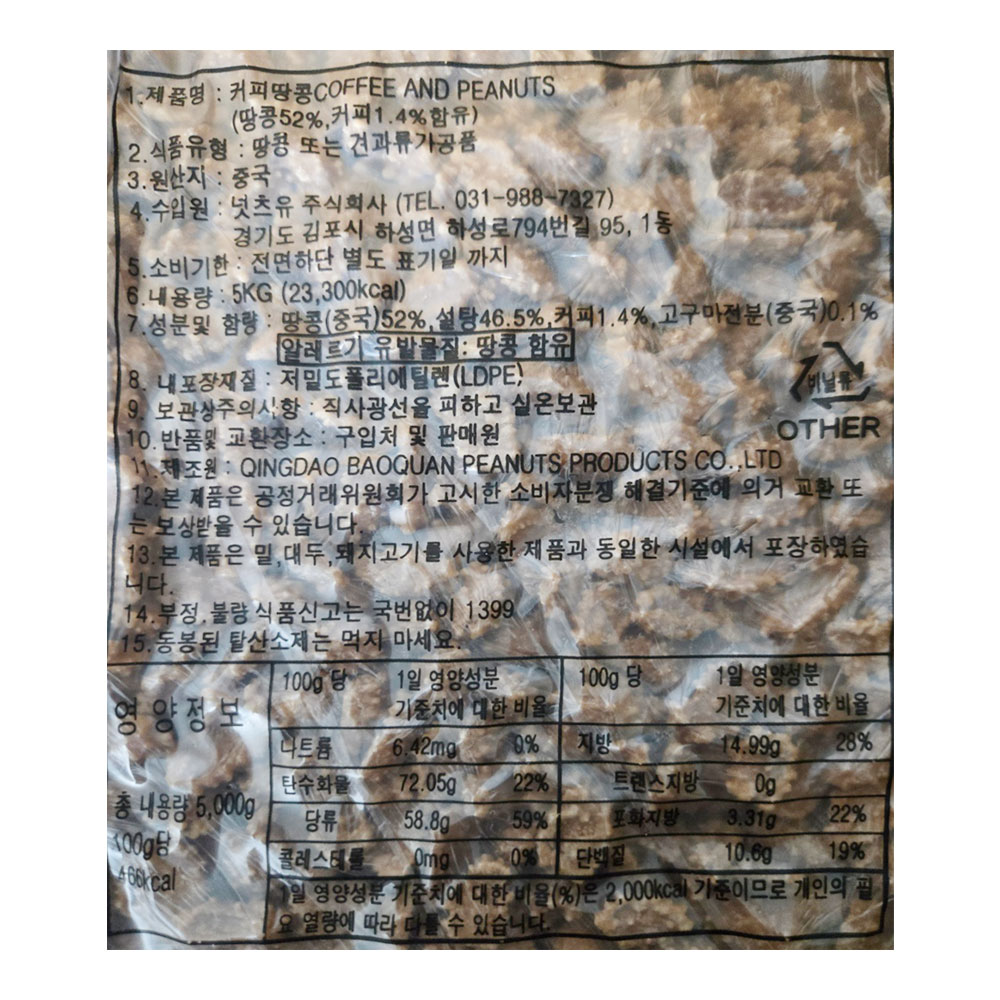 1.제품명 : 커피땅콩COFFEE AND PEANUTS
(땅콩52%,커피1.4%함유)
2.식품유형 : 땅콩 또는 견과류가공품
3.원산지 : 중국
4.수입원 : 넛츠유 주식회사 (TEL. 031-988-7327)
경기도 김포시 하성면 하성로794번길 95, 1동
5.소비기한 : 전면하단 별도 표기일 까지
6.내용량 : 5KG (23,300kcal)
7.성분및 함량 : 땅콩(중국)52%,설탕46.5%,커피1.4%,고구마전분(중국)0.1%
알레르기 유발물질: 땅콩 함유
8. 내포장재질 : 저밀도폴리에틸렌(LDPE)
비닐류
9. 보관상주의사항 : 직사광선을 피하고 실온보관
OTHER
10. 반품및 교환장소 : 구입처 및 판매원
11.제조원 : QINGDAO BAOQUAN PEANUTS PRODUCTS CO.,LTD
12.본 제품은 공정거래위원회가 고시한 소비자분쟁 해결기준에 의거 교환 또
는 보상받을 수 있습니다.
13.본 제품은 밀,대두,돼지고기를 사용한 제품과 동일한 시설에서 포장하였습
니다.
14.부정,불량식품신고는 국번없이 1399
15.동봉된 탈산소제는 먹지 마세요.
영양정보
총 내용량 5,000g
100g당
466kcal
100g 당 1일 영양성분 100g 당 1일 영양성분
기준치에 대한 비율 기준치에 대한 비율
나트륨 6.42mg 0% 지방 14.99g 28%
탄수화물 72.05g 22% 트랜스지방 0g
당류 58.8g 59% 포화지방 3.31g 22%
콜레스테롤 0mg 0% 단백질 10.6g 19%
1일 영양성분 기준치에 대한 비율(%)은 2,000kcal 기준이므로 개인의 필
요 열량에 따라 다를 수 있습니다.